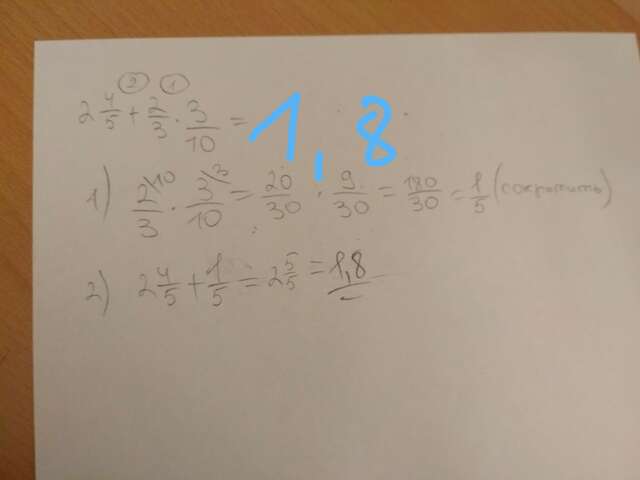 ② ①
2 4/5 + 2/3 · 3/10 = 1,8
1) 2\10/3 · 3\3/10 = 20/30 · 9/30 = 180/30 = 1/5 (сократить)
2) 2 4/5 + 1/5 = 2 5/5 = 1,8